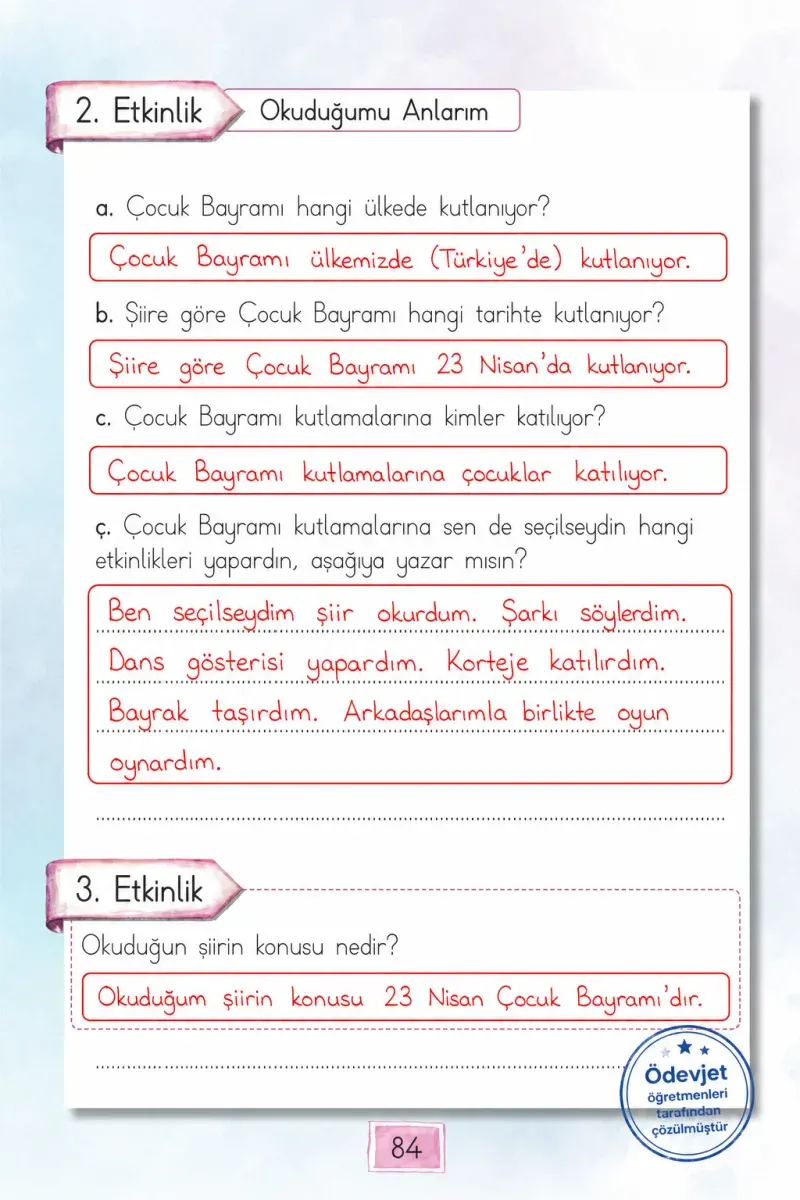 2. Etkinlik
Okuduğumu Anlarım
a. Çocuk Bayramı hangi ülkede kutlanıyor?
Çocuk Bayramı ülkemizde (Türkiye'de) kutlanıyor.
b. Şiire göre Çocuk Bayramı hangi tarihte kutlanıyor?
Şiire göre Çocuk Bayramı 23 Nisan'da kutlanıyor.
c. Çocuk Bayramı kutlamalarına kimler katılıyor?
Çocuk Bayramı kutlamalarına çocuklar katılıyor.
ç. Çocuk Bayramı kutlamalarına sen de seçilseydin hangi
etkinlikleri yapardın, aşağıya yazar mısın?
Ben seçilseydim şiir okurdum. Şarkı söylerdim.
Dans gösterisi yapardım. Korteje katılırdım.
Bayrak taşırdım. Arkadaşlarımla birlikte oyun
oynardım.
3. Etkinlik
Okuduğun şiirin konusu nedir?
Okuduğum şiirin konusu 23 Nisan Çocuk Bayramı'dır.
Ödevjet
öğretmenleri
tarafından
çözülmüştür
84